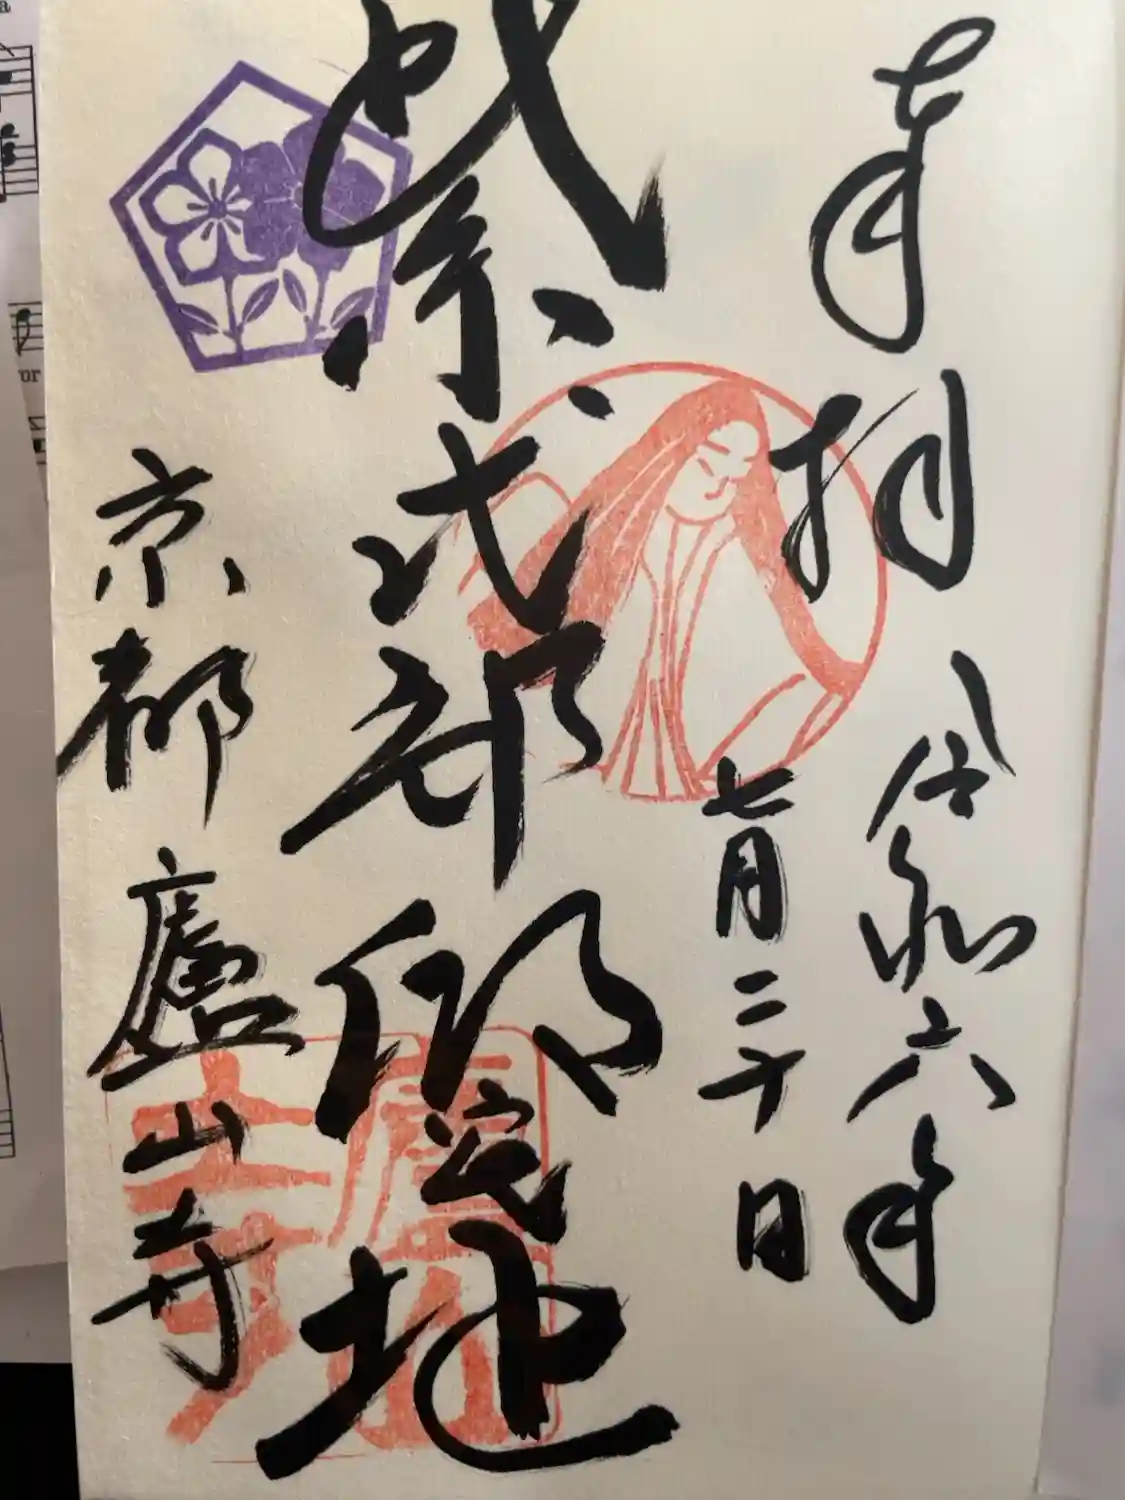 奉拝 令和六年
七月二十日
紫式部邸宅地
京都 廬山寺